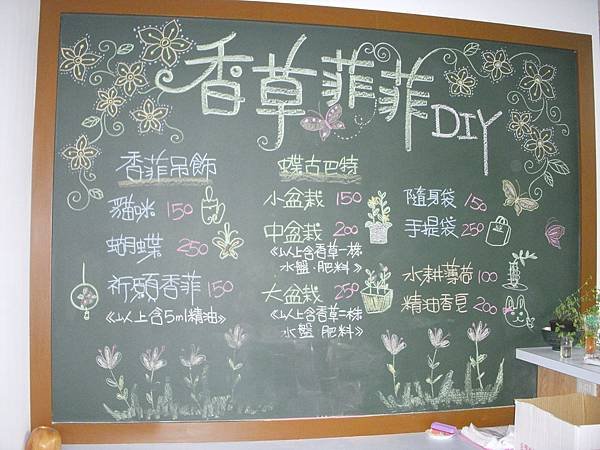 香草菲菲DIY
香菲吊飾
貓咪 150
蝴蝶 250
祈願香菲 150
《以上含5ml精油》
蝶古巴特
小盆栽 150
中盆栽 200
《以上含香草一株
水盤 肥料》
大盆栽 250
《以上含香草一株
水盤 肥料》
隨身袋 150
手提袋 250
水耕薄荷 100
精油香皂 200